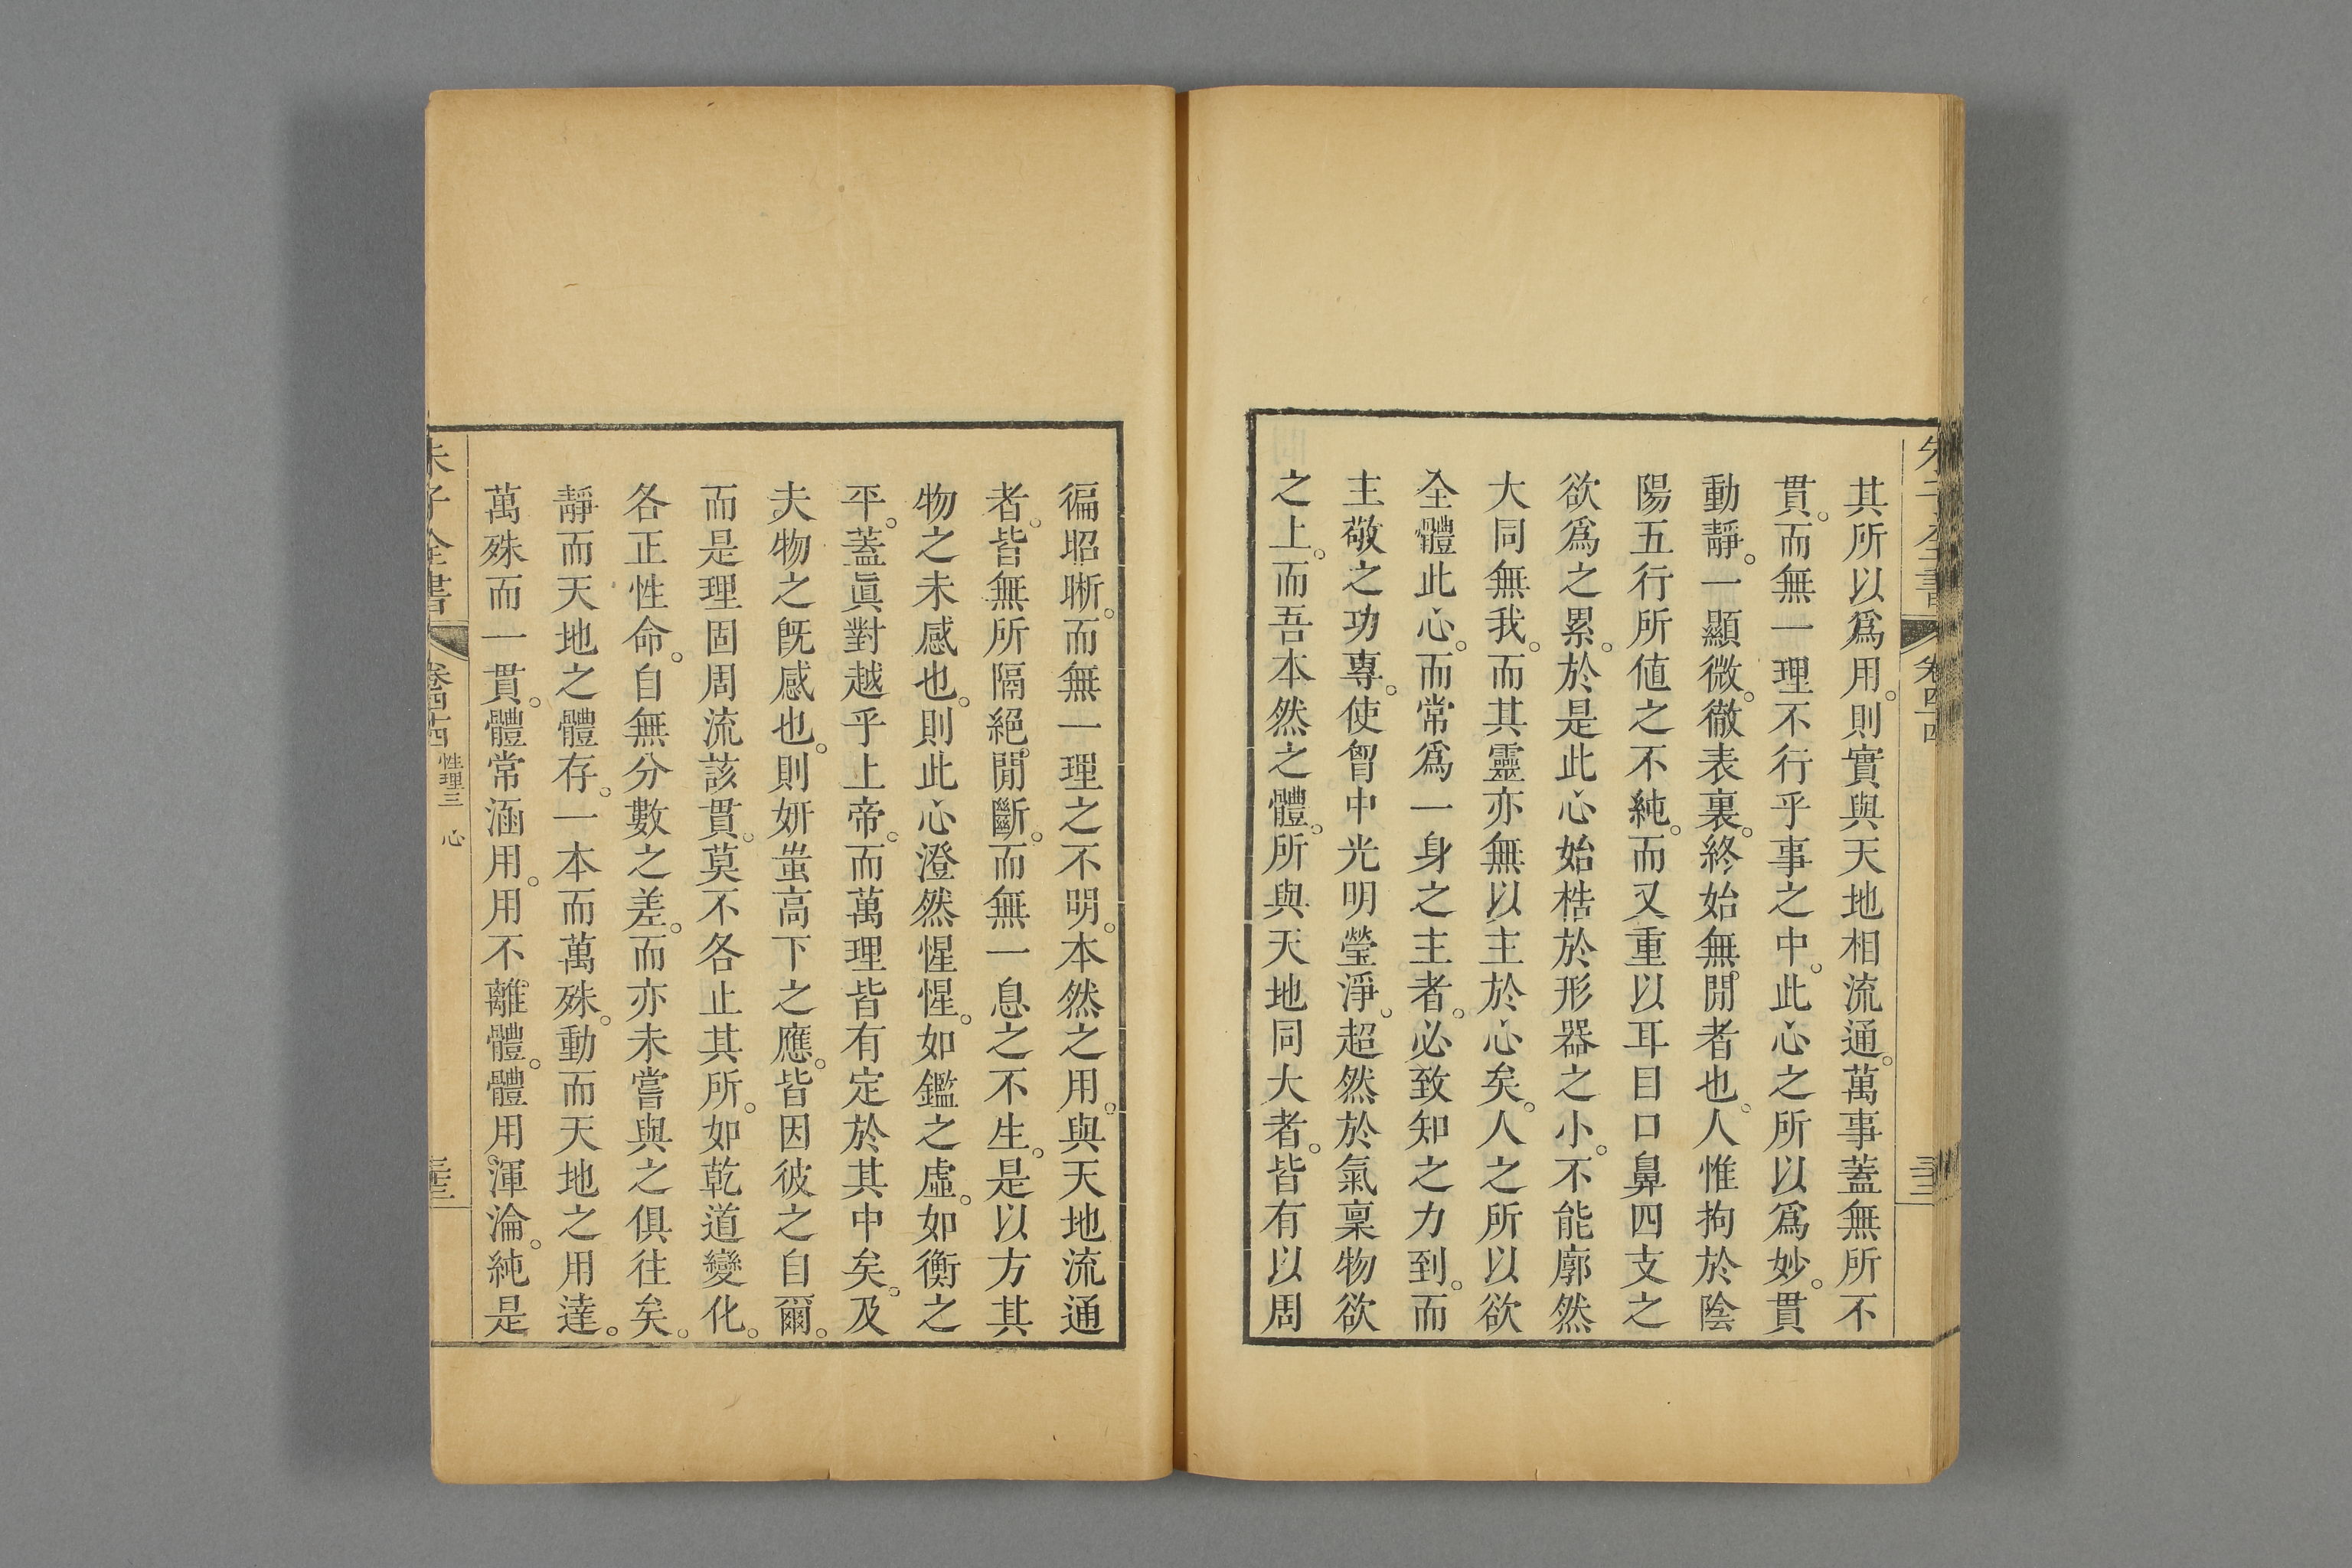 其所以爲用。則實與天地相流通。萬事蓋無所不
貫。而無一理不行乎事之中。此心之所以爲妙。貫
動靜。一顯微。徹表裏。終始無閒者也。人惟拘於陰
陽五行所値之不純。而又重以耳目口鼻四支之
欲爲之累。於是此心始梏於形器之小。不能廓然
大同無我。而其靈亦無以主於心矣。人之所以欲
全體此心。而常爲一身之主者。必致知之力到。而
主敬之功專。使胷中光明瑩淨。超然於氣稟物欲
之上。而吾本然之體。所與天地同大者。皆有以周
徧昭晰。而無一理之不明。本然之用。與天地流通
者。皆無所隔絕閒斷。而無一息之不生。是以方其
物之未感也。則此心澄然惺惺。如鑑之虛。如衡之
平。蓋眞對越乎上帝。而萬理皆有定於其中矣。及
夫物之旣感也。則妍蚩高下之應。皆因彼之自爾。
而是理固周流該貫。莫不各止其所。如乾道變化。
各正性命。自無分數之差。而亦未嘗與之俱往矣。
靜而天地之體存。一本而萬殊。動而天地之用達。
萬殊而一貫。體常涵用。用不離體。體用渾淪。純是
朱子全書 卷四十四 性理三 心